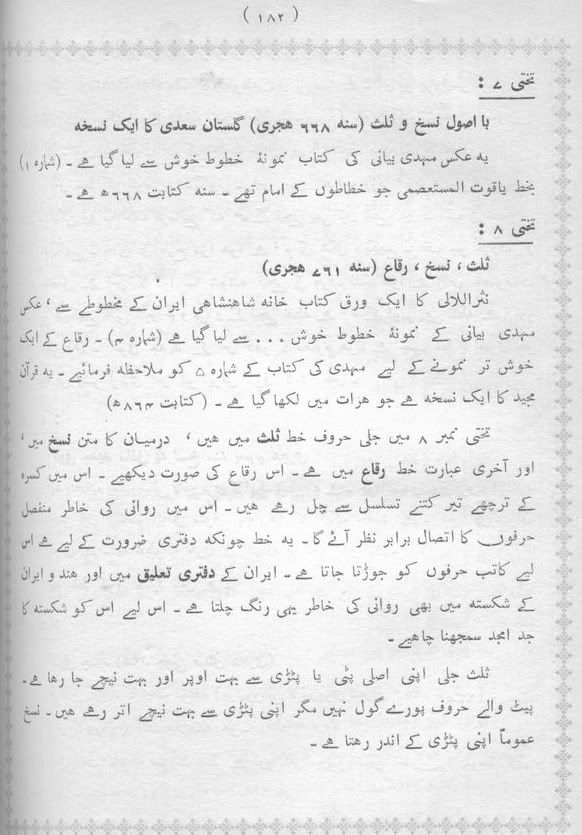 ( ۱۸۲ )
تختی ۷ :
با اصول نسخ و ثلث (سنہ ۶۶۸ ہجری) گلستان سعدی کا ایک نسخہ
یہ عکس مہدی بیانی کی کتاب نمونۂ خطوط خوش سے لیا گیا ہے ۔ (شمارہ ۱)
بخط یاقوت المستعصمی جو خطاطوں کے امام تھے ۔ سنہ کتابت ۶۶۸ھ ہے ۔
تختی ۸ :
ثلث ، نسخ ، رقاع (سنہ ۷۶۱ ہجری)
نثراللالی کا ایک ورق کتاب خانہ شاہنشاہی ایران کے مخطوطے سے ، عکس
مہدی بیانی کے نمونۂ خطوط خوش . . . سے لیا گیا ہے (شمارہ ۴) ۔ رقاع کے ایک
خوش تر نمونے کے لیے مہدی کی کتاب کے شمارہ ۵ کو ملاحظہ فرمائیے ۔ یہ قرآن
مجید کا ایک نسخہ ہے جو ہرات میں لکھا گیا ہے ۔ (کتابت ۸۶۴ھ)
تختی نمبر ۸ میں جلی حروف خط ثلث میں ہیں ، درمیان کا متن نسخ میں ،
اور آخری عبارت خط رقاع میں ہے ۔ اس رقاع کی صورت دیکھیے ۔ اس میں کسرہ
کے ترچھے تیر کتنے تسلسل سے چل رہے ہیں ۔ اس میں روانی کی خاطر منفصل
حرفوں کا اتصال برابر نظر آئے گا ۔ یہ خط چونکہ دفتری ضرورت کے لیے ہے اس
لیے کاتب حرفوں کو جوڑتا جاتا ہے ۔ ایران کے دفتری تعلیق میں اور ہند و ایران
کے شکستہ میں بھی روانی کی خاطر یہی رنگ چلتا ہے ۔ اس لیے اس کو شکستہ کا
جد امجد سمجھنا چاہیے ۔
ثلث جلی اپنی اصلی پٹی یا پٹڑی سے بہت اوپر اور بہت نیچے جا رہا ہے ۔
پیٹ والے حروف پورے گول نہیں مگر اپنی پٹڑی سے بہت نیچے اتر رہے ہیں ۔ نسخ
عموماً اپنی پٹڑی کے اندر رہتا ہے ۔